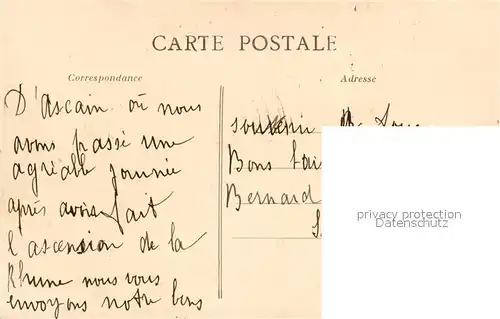 CARTE POSTALE
Correspondance
Adresse
D'Ascain où nous
avons passé une
agréable journée
après avoir fait
l'ascension de la
Rhune nous vous
envoyons notre bons
souvenir
Bons bais
Bernard
S.
privacy protection
Datenschutz